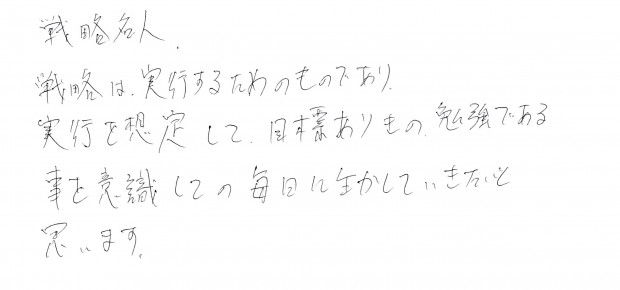 戦略名人.
戦略は、実行するためのものであり、
実行を想定して、目標ありもの、勉強である
事を意識しての毎日に生かしていきたいと
思います。